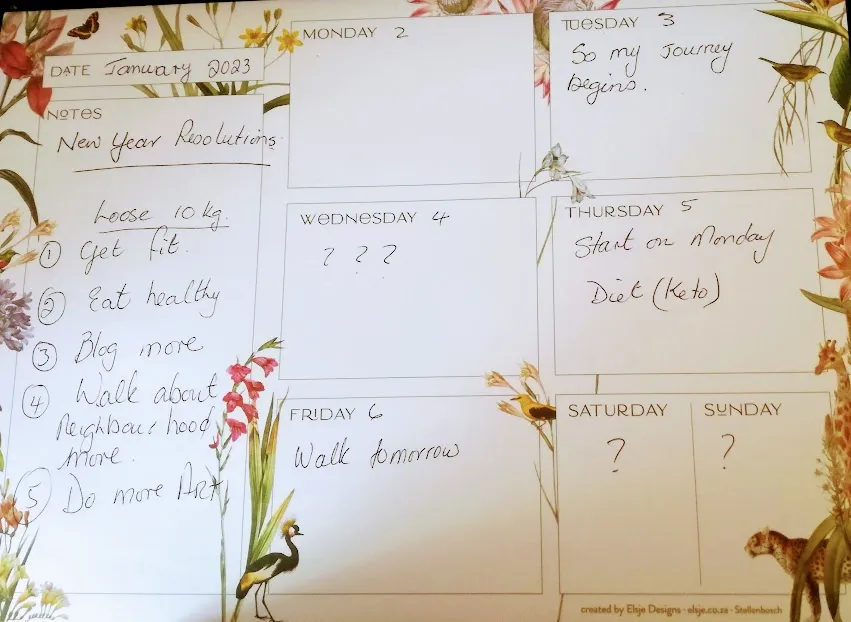 DATE January 2023
NOTES
New Year Resolutions
Loose 10 kg.
① Get fit.
② Eat healthy
③ Blog more
④ Walk about
Neighbour hood
more.
⑤ Do more Art
MONDAY 2
TUESDAY 3
So my Journey
begins.
WEDNESDAY 4
? ? ?
THURSDAY 5
Start on Monday
Diet (Keto)
FRIDAY 6
Walk tomorrow
SATURDAY
?
SUNDAY
?
created by Elsje Designs · elsje.co.za · Stellenbosch